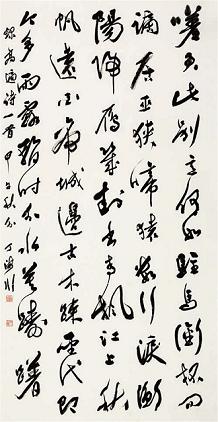 嗟君此别意何如駐馬銜杯問
謫居巫峽啼猿數行淚衡
陽歸雁幾封書青楓江上秋
帆遠白帝城邊古木疎聖代即
今多雨露暫時分手莫躊躇
錄高適詩一首甲午秋